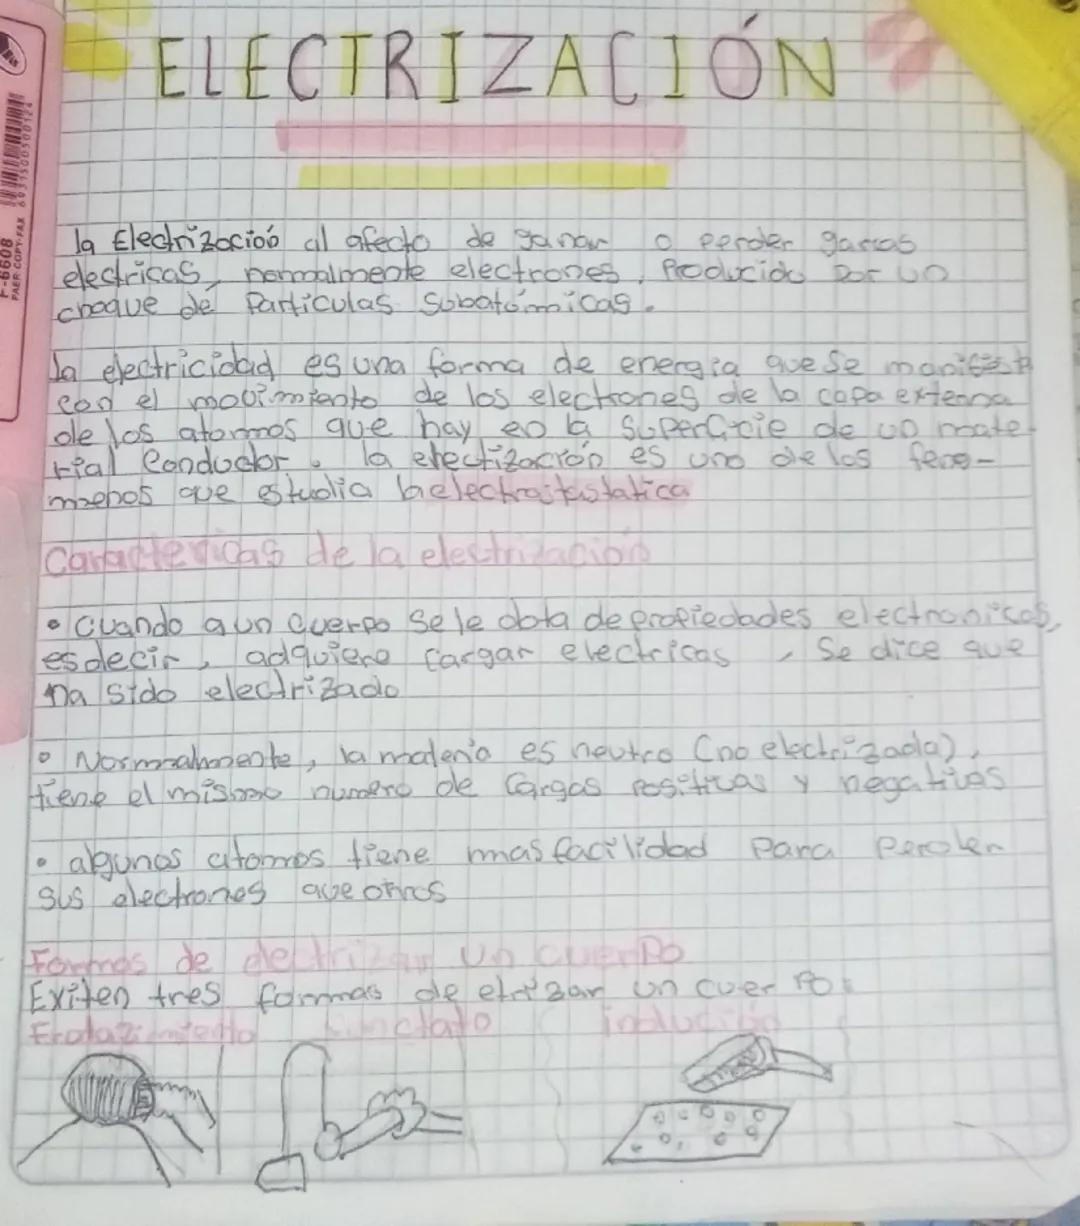 ELECTRIZACIÓN
la Electrización al afecto de ganar o perder garcas
electricas, normalmente electrones, Producido por un
choque de Particulas Subatómicas.
la electricidad es una forma de energia que se manifiest
con el movimiento de los electrones de la capa externa
de los atomos que hay en la Superficie de un mate
rial Conductor. la erectización es uno de los feno-
menos que estudia la electrostastatica
Caractericas de la electrización
• Cuando a un cuerpo se le dota de propiedades electronicas,
es decir, adquiere Cargar electricas, Se dice que
ha sido electrizado
• Normalmente, la materia es neutro (no electrizada),
tiene el mismo numero de Cargas positivas y negativas
• algunos atomos tiene mas facilidad Para Perder
sus electrones que otros
Formas de electrizar un cuerpo
Exiten tres formas de etrizar un cuerpo:
F-6608
PAER COPY-FAX